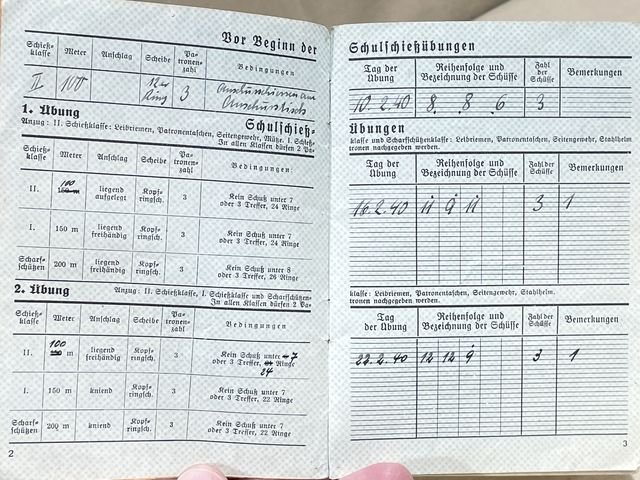 Vor Beginn der
Schieß= klasse Meter Anschlag Scheibe Pa= tronen= zahl Bedingungen
II 100 12er Ring 3
1. Übung Schulschieß=
Anzug: II. Schießklasse: Leibriemen, Patronentaschen, Seitengewehr, Mütze. I. Schieß=
In allen Klassen dürfen 2 Pa=
Schieß= klasse Meter Anschlag Scheibe Pa= tronen= zahl Bedingungen:
100
II. 150 m liegend aufgelegt Kopf= ringsch. 3 Kein Schuß unter 7
oder 3 Treffer, 24 Ringe
I. 150 m liegend freihändig Kopf= ringsch. 3 Kein Schuß unter 7
oder 3 Treffer, 24 Ringe
Scharf= schützen 200 m liegend freihändig Kopf= ringsch. 3 Kein Schuß unter 8
oder 3 Treffer, 26 Ringe
2. Übung Anzug: II. Schießklasse, I. Schießklasse und Scharfschützen=
In allen Klassen dürfen 2 Pa=
Schieß= klasse Meter Anschlag Scheibe Pa= tronen= zahl Bedingungen
100
II. m liegend freihändig Kopf= ringsch. 3 Kein Schuß unter 7
oder 3 Treffer, Ringe
24
I. 150 m kniend Kopf= ringsch. 3 Kein Schuß unter 7
oder 3 Treffer, 22 Ringe
Scharf= schützen 200 m kniend Kopf= ringsch. 3 Kein Schuß unter 7
oder 3 Treffer, 22 Ringe
2
Schulschießübungen
Tag der Übung Reihenfolge und Bezeichnung der Schüsse Zahl der Schüsse Bemerkungen
10.2.40 8. 8. 6. 3
Übungen
klasse und Scharfschützenklasse: Leibriemen, Patronentaschen, Seitengewehr, Stahlhelm
tronen nachgegeben werden.
Tag der Übung Reihenfolge und Bezeichnung der Schüsse Zahl der Schüsse Bemerkungen
16.2.40 11 9 11 3 1
klasse: Leibriemen, Patronentaschen, Seitengewehr, Stahlhelm.
tronen nachgegeben werden.
Tag der Übung Reihenfolge und Bezeichnung der Schüsse Zahl der Schüsse Bemerkungen
22.2.40 12 12 9 3 1
3